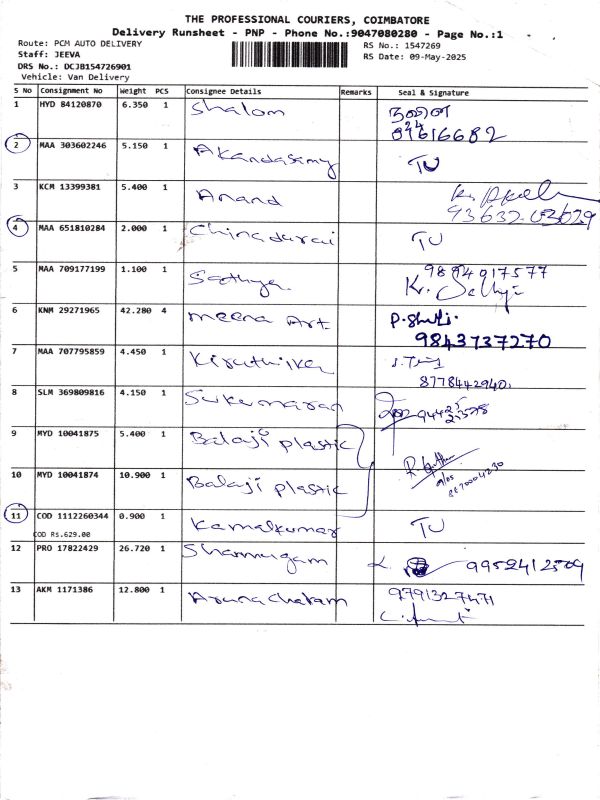 THE PROFESSIONAL COURIERS, COIMBATORE
Delivery Runsheet - PNP - Phone No.:9047080280 - Page No.:1
Route: PCM AUTO DELIVERY
Staff: JEEVA
DRS No.: DCJB154726901
Vehicle: Van Delivery
RS No.: 1547269
RS Date: 09-May-2025
S No Consignment No Weight PCS Consignee Details Remarks Seal & Signature
1 HYD 84120870 6.350 1 Shalom
2 MAA 303602246 5.150 1 Akandasamy TU
3 KCM 13399381 5.400 1 Anand
93632-03629
4 MAA 651810284 2.000 1 Chinadurai TU
5 MAA 709177199 1.100 1 Sathya. 9894917577
6 KNM 29271965 42.280 4 meena Art.
9843737270
7 MAA 707795859 4.450 1 Kiruthika
8778442940.
8 SLM 369809816 4.150 1 Sukumaran
9 MYD 10041875 5.400 1 Balaji plastic
10 MYD 10041874 10.900 1 Balaji plastic
11 COD 1112260344 0.900 1 Kamalkumar TU
COD Rs.629.00
12 PRO 17822429 26.720 1 Shanmugam 9952412509
13 AKM 1171386 12.800 1 Arunachalam 9791327471